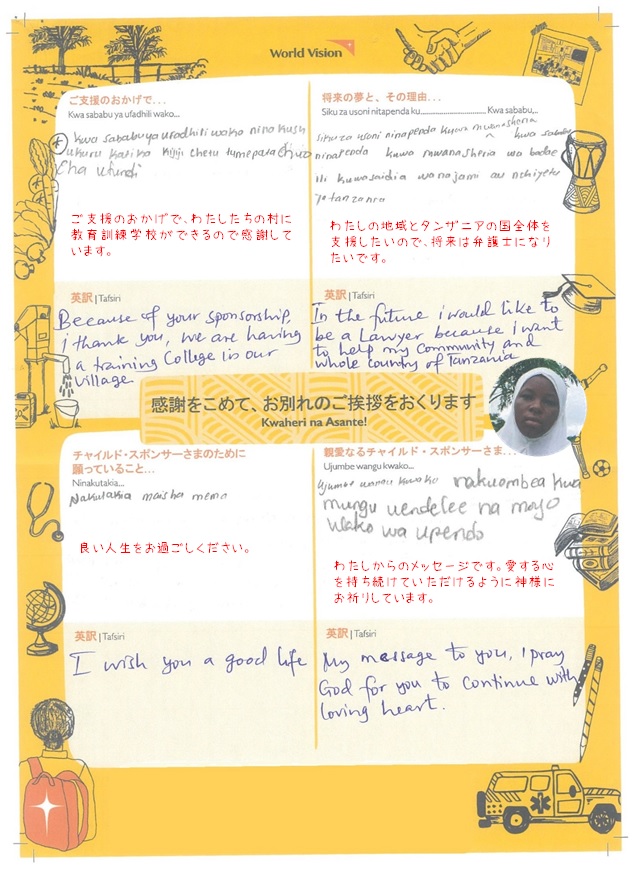 World Vision
ご支援のおかげで...
Kwa sababu ya ufadhili wako...
kwa sababu ya ufadhili wako nina kush
ukuru katika kijiji chetu tumepata chuo
cha ufundi
ご支援のおかげで、わたしたちの村に
教育訓練学校ができるので感謝して
います。
英訳 | Tafsiri
Because of your sponsorship,
i thank you, we are having
a training College in our
village
将来の夢と、その理由...
Siku za usoni nitapenda ku............................ Kwa sababu,..
siku za usoni ninapenda kuwa mwanasheria kwa sababu
ninatenda kuwa mwanasheria wa badae
ili kuwasaidia wanajamii au nchi yetu
ya tanzania
わたしの地域とタンザニアの国全体を
支援したいので、将来は弁護士になり
たいです。
英訳 | Tafsiri
In the future i would like to
be a Lawyer because i want
to help my Community and
whole country of Tanzania
感謝をこめて、お別れのご挨拶をおくります
Kwaheri na Asante!
チャイルド・スポンサーさまのために
願っていること...
Ninakutakia...
Nakutakia maisha mema
良い人生をお過ごしください。
英訳 | Tafsiri
I wish you a good life
親愛なるチャイルド・スポンサーさま...
Ujumbe wangu kwako...
Ujumbe wangu kwako nakuombea kwa
mungu uendelee na moyo
wako wa upendo
わたしからのメッセージです。愛する心
を持ち続けていただけるように神様に
お祈りしています。
英訳 | Tafsiri
My message to you, I pray
God for you to continue with
loving heart.